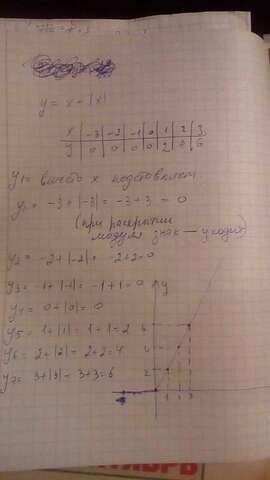 y = x + |x|
x | -3 | -2 | -1 | 0 | 1 | 2 | 3
y | 0 | 0 | 0 | 0 | 2 | 4 | 6
y1 = вместо x подставляем
y = -3 + |-3| = -3+3 = 0
(при раскрытии
модуля знак — уходит)
y2 = -2+|-2| = -2+2=0
y3 = -1+|-1| = -1+1=0
y4 = 0+|0| = 0
y5 = 1+|1| = 1+1=2
y6 = 2+|2| = 2+2=4
y7 = 3+|3| = 3+3=6
y
6
4
2
1 2 3